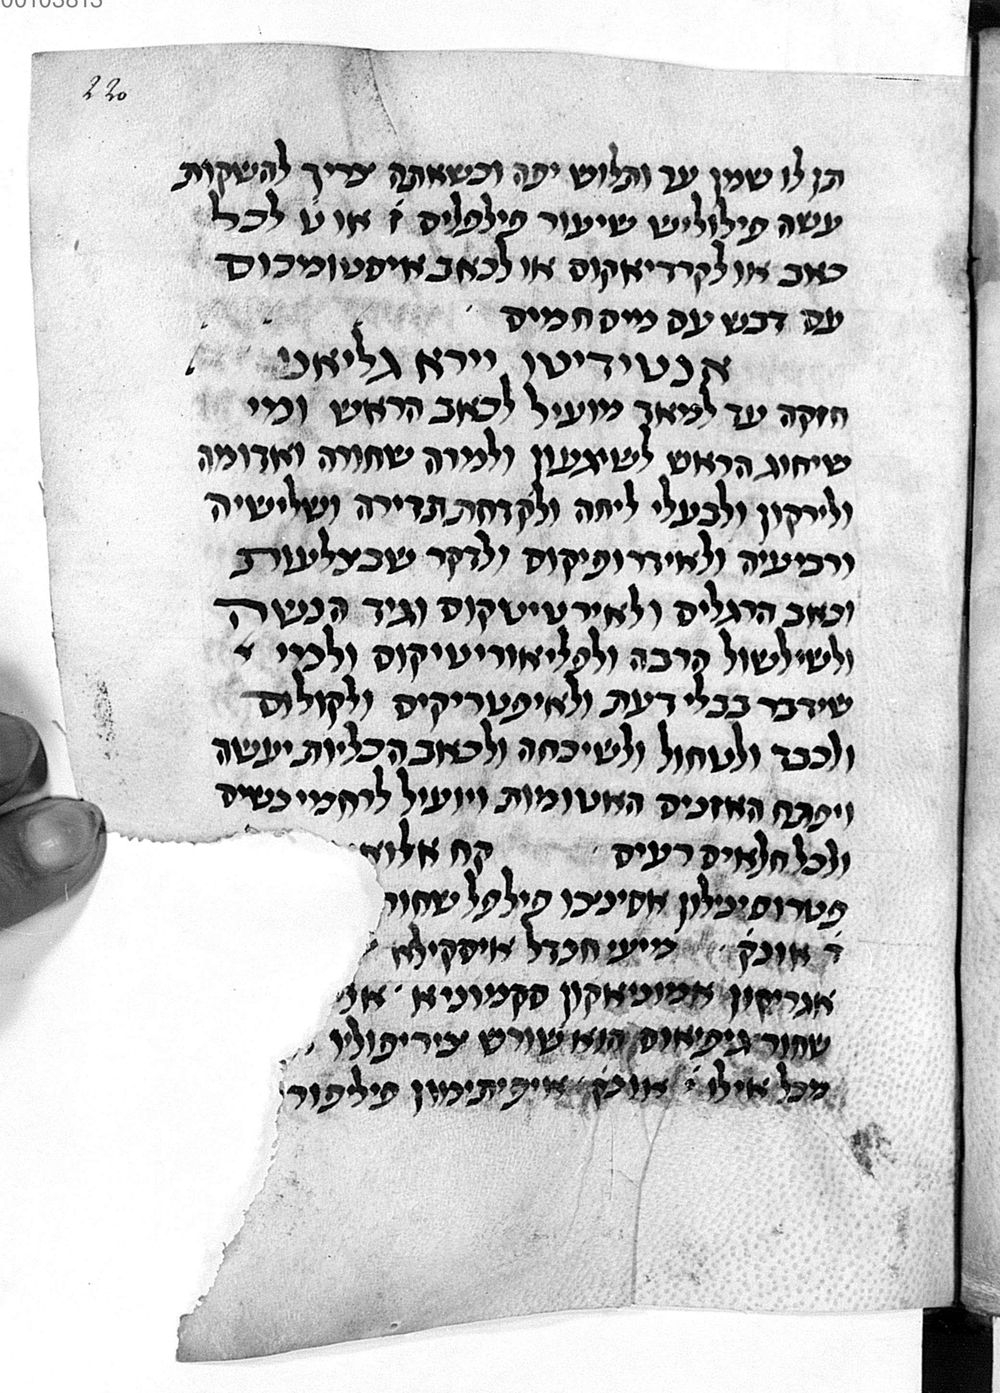 00103813
220
תן לו שמן עד ותלוש יפה וכשאתה צריך להשקות
עשה פילוליש שיעור פילפלים ז̇ או ט̇ לכל
כאב או לקרדיאקוס או לכאב איסטומיכוס
עם דבש עם מים חמים
אנטידיטו יירא גליאני
חזקה עד למאד מועיל לכאב הראש ומי
שיחוג הראש לשיגעון ולמרה שחורה ואדומה
ולירקון ולבעלי ליחה ולקדחת תדירה ושלישיה
ורביעיה ולאידרופיקוס ולדקר שבצלעות
וכאב הרגלים ולאירטיטקוס וגיד הנשה
ולשילשול הרבה ולפליאוריטיקוס ולמי
שידבר בבלי דעת ולאיפטריקים ולקולוס
ולכבד ולטחול ולשיכחה ולכאב הכליות יעשה
ויפתח האזנים האטומות ויועיל לרחמי נשים
ולכל חלאים רעים קח אלוא
פטרוסילינון אסינכו פילפל שחור
ד̇ אונק̇ מייעי חנדל איסקילא
אגריקון אמוניאקון סקמוניא
שחור גיפיאוס הוא שורש ציריפוליו
מכל אילו י̇ אונק̇ איפיתימון פילפור